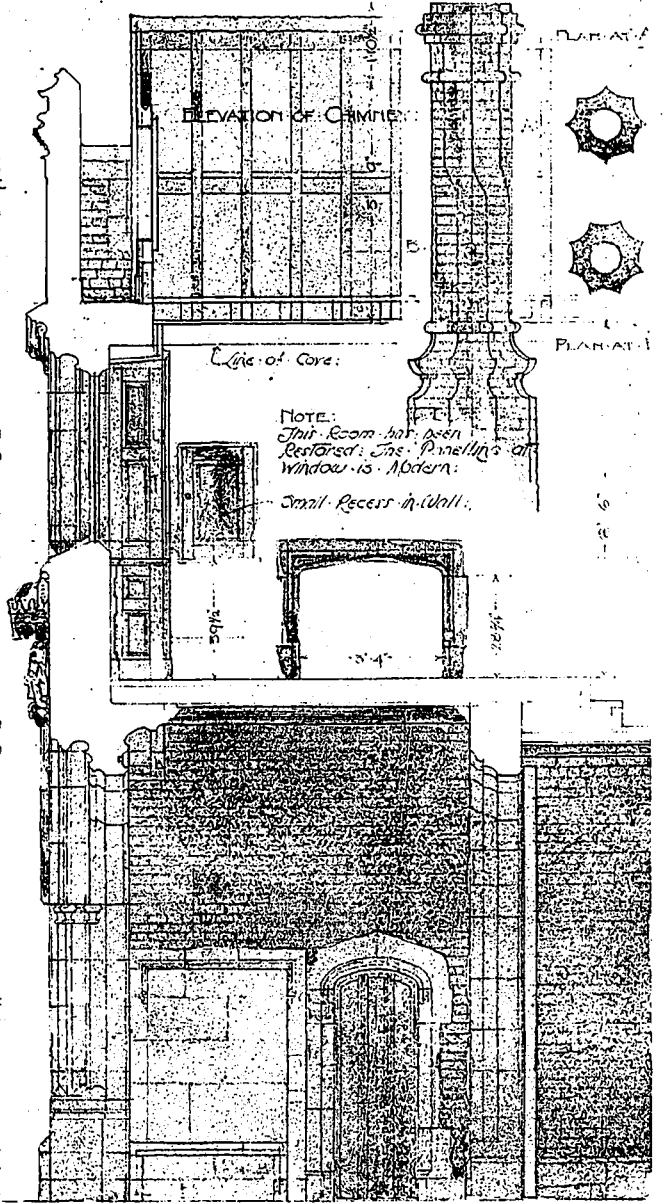 PLAN AT A
ELEVATION OF CHIMNE
1'-10½"
9"
5
A
B
PLAN AT
Line of Cove:
NOTE:
This Room has been
Restored: The Panelling at
Window is Modern:
Small Recess in Wall:
3'-4"